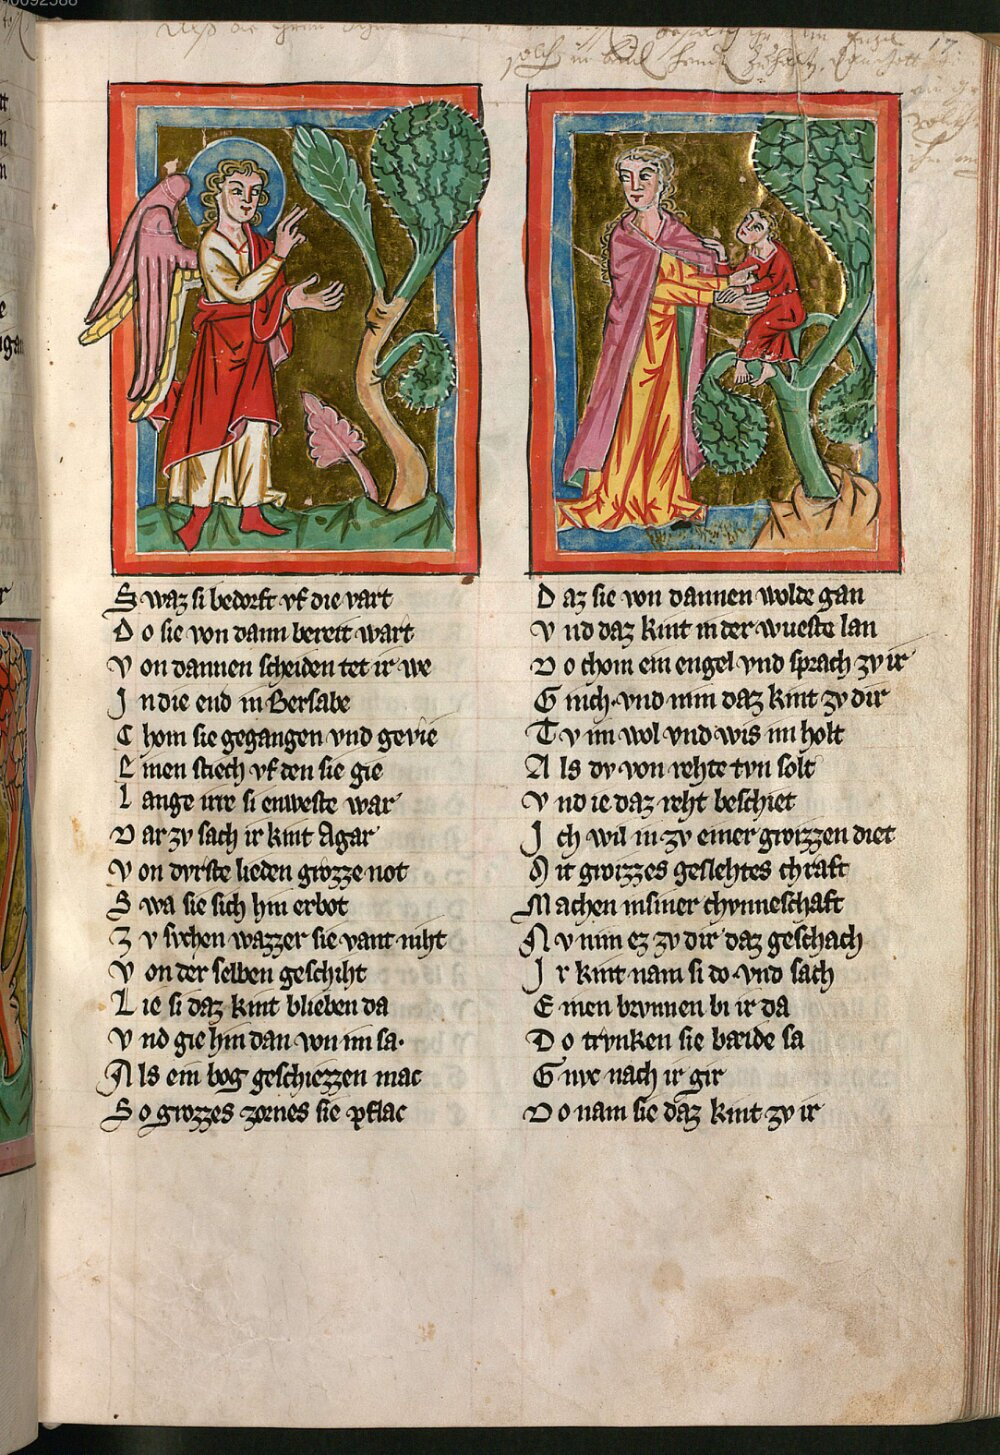 Swaz si bedorft vf die vart
Do sie von dann bereit wart
Von dannen scheiden tet ir we
In die end in Bersabe
Chom sie gegangen vnd gevie
Einen stiech vf den sie gie
Lange irre si enweste war
Dar zv sach ir kint Agar
Von dvrste lieden grozze not
Swa sie sich hin erbot
Zv svchen wazzer sie vant niht
Von der selben geschiht
Lie si daz kint blieben da
Vnd gie hin dan von im sa·
Als ein bog geschiezzen mac
So grozzes zornes sie pflac
Daz sie von dannen wolde gan
Vnd daz kint in der wueste lan
Do chom ein engel vnd sprach zv ir
Ginch· vnd nim daz kint zv dir
Tv im wol vnd wis im holt
Als dv von rehte tvn solt
Vnd ie daz reht beschiet
Ich wil in zv einer grozzen diet
Mit grozzes geslehtes chraft
Machen in siner chvnneschaft
Nv nim ez zv dir daz geschach
Ir kint nam si do vnd sach
Einen brvnnen bi ir da
Do trvnken sie bæide sa
Gnvc nach ir gir
Do nam sie daz kint zv ir